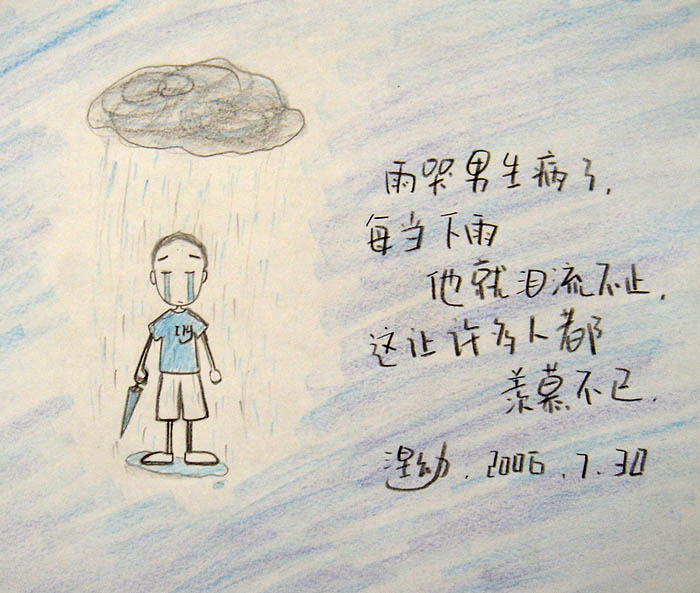 雨哭男生病了,
每当下雨
他就泪流不止,
这让许多人都
羡慕不已.
涅幼. 2006.7.30